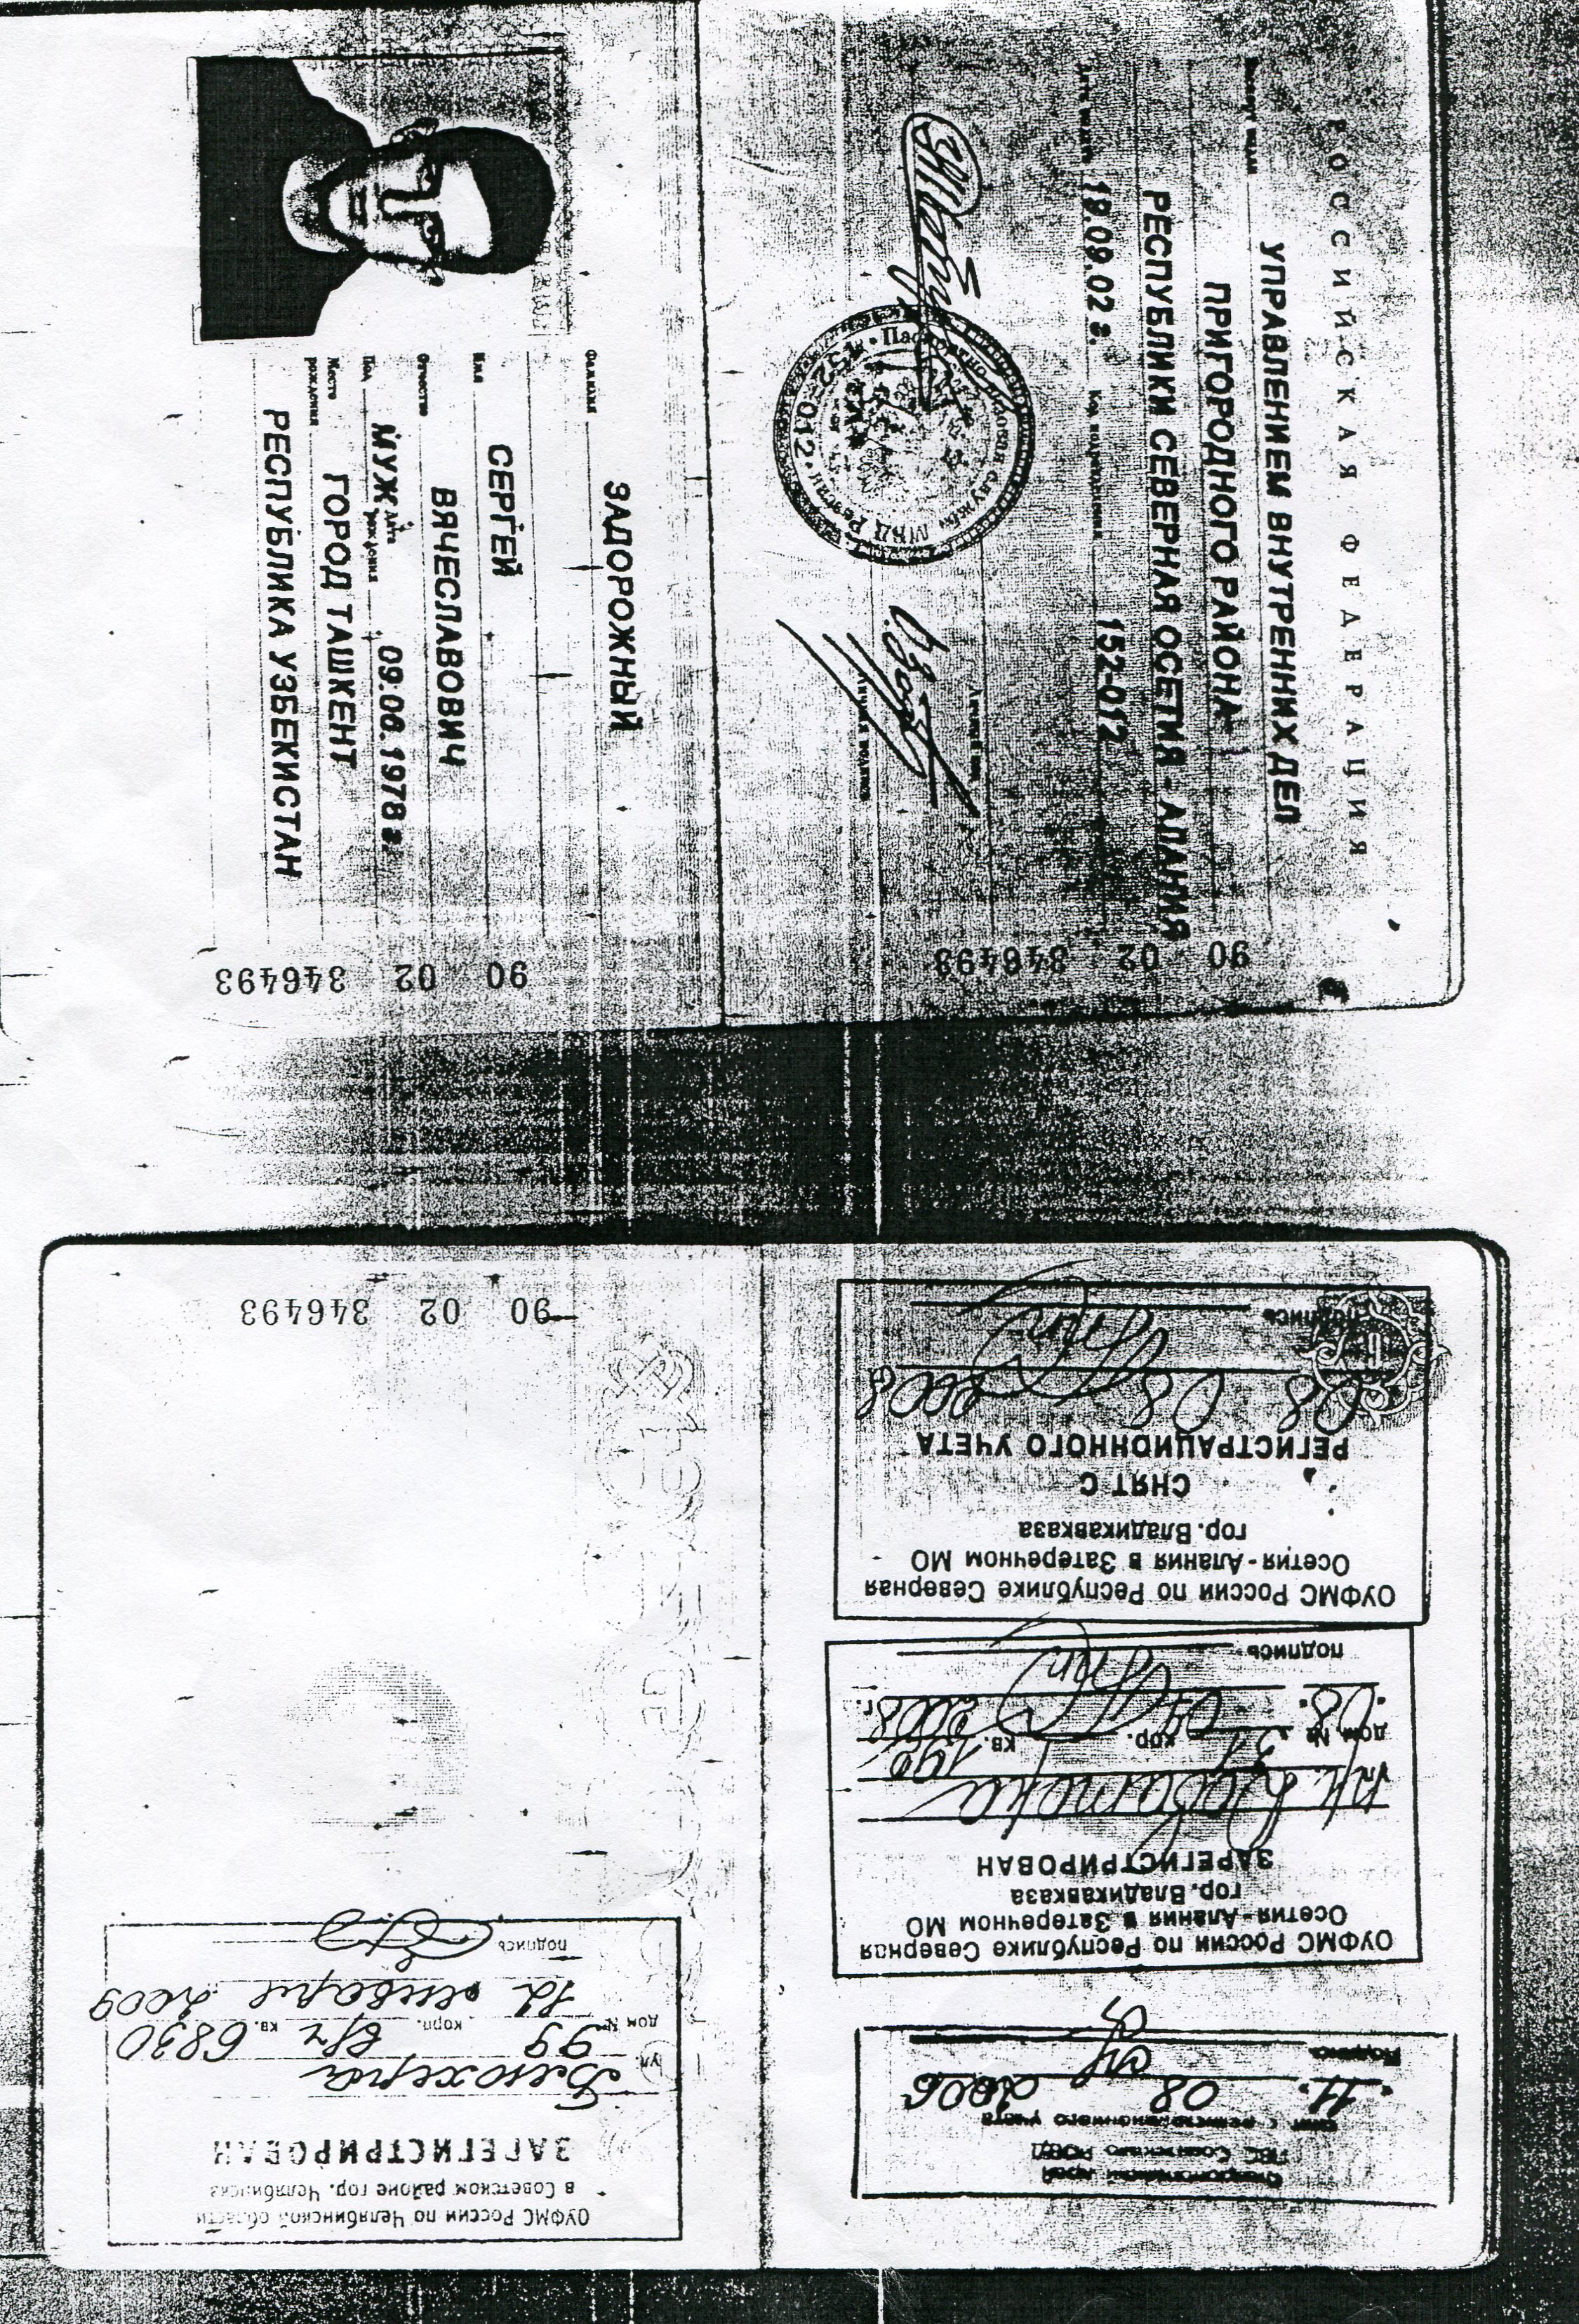 РОССИЙСКАЯ ФЕДЕРАЦИЯ
Паспорт выдан
УПРАВЛЕНИЕМ ВНУТРЕННИХ ДЕЛ
ПРИГОРОДНОГО РАЙОНА
РЕСПУБЛИКИ СЕВЕРНАЯ ОСЕТИЯ - АЛАНИЯ
Дата выдачи 19.09.02 г. Код подразделения 152-012
Личный код
Личная подпись
Паспортно-визовая служба МВД России
152-012
90 02 346493
Фамилия
ЗАДОРОЖНЫЙ
Имя
СЕРГЕЙ
Отчество
ВЯЧЕСЛАВОВИЧ
Пол МУЖ. Дата рождения 09.06.1978 г.
Место рождения
ГОРОД ТАШКЕНТ
РЕСПУБЛИКА УЗБЕКИСТАН
90 02 346493
ПВС Советского РОВД
Снят с регистрационного учета
11. 08 2006
Подпись
ОУФМС России по Республике Северная
Осетия-Алания в Затеречном МО
гор. Владикавказа
ЗАРЕГИСТРИРОВАН
дом № 31 кор. кв.
08. 2008 г.
подпись
ОУФМС России по Республике Северная
Осетия-Алания в Затеречном МО
гор. Владикавказа
СНЯТ С
РЕГИСТРАЦИОННОГО УЧЕТА
08 08 2008
Подпись
ОУФМС России по Челябинской области
в Советском районе гор. Челябинска
ЗАРЕГИСТРИРОВАН
ул. Блюхера
дом № 99 корп. в/ч кв. 6830
12 января 2009
подпись
90 02 346493